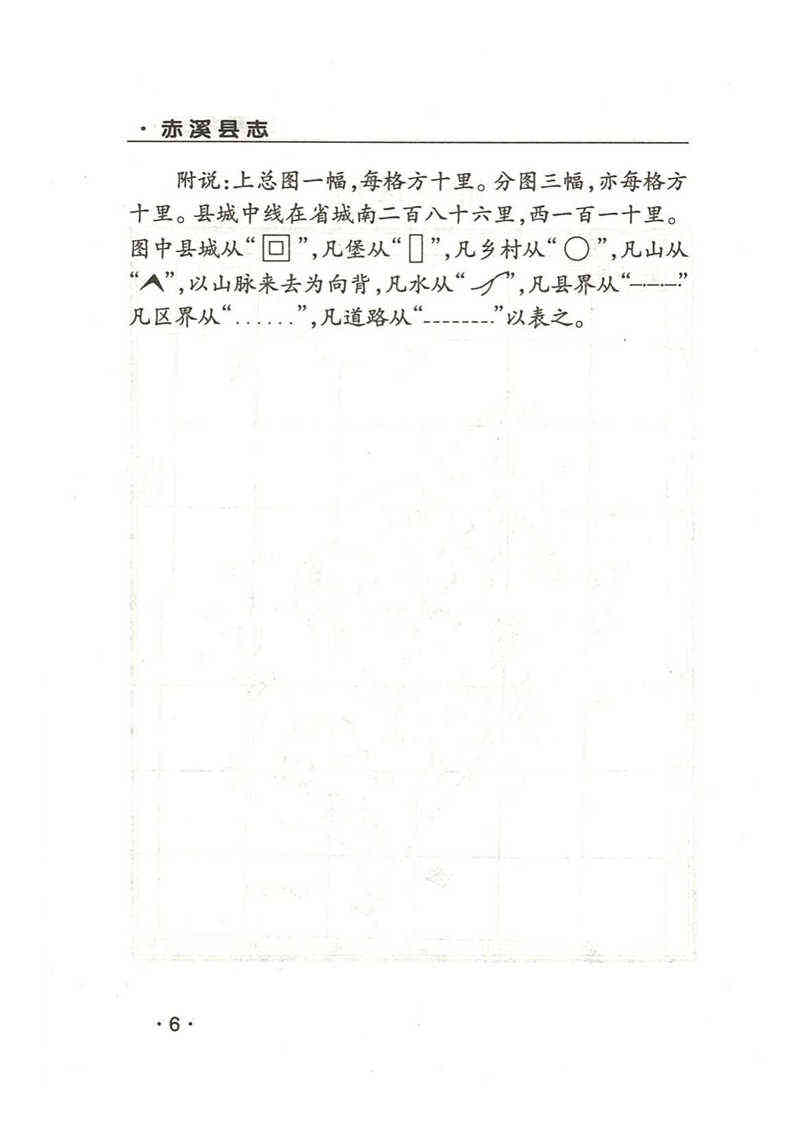 ·赤溪县志
附说:上总图一幅,每格方十里。分图三幅,亦每格方
十里。县城中线在省城南二百八十六里,西一百一十里。
图中县城从“回”,凡堡从“▯”,凡乡村从“○”,凡山从
“ʌ”,以山脉来去为向背,凡水从“”,凡县界从“—·—·—·”
凡区界从“......”,凡道路从“-------”以表之。
·6·